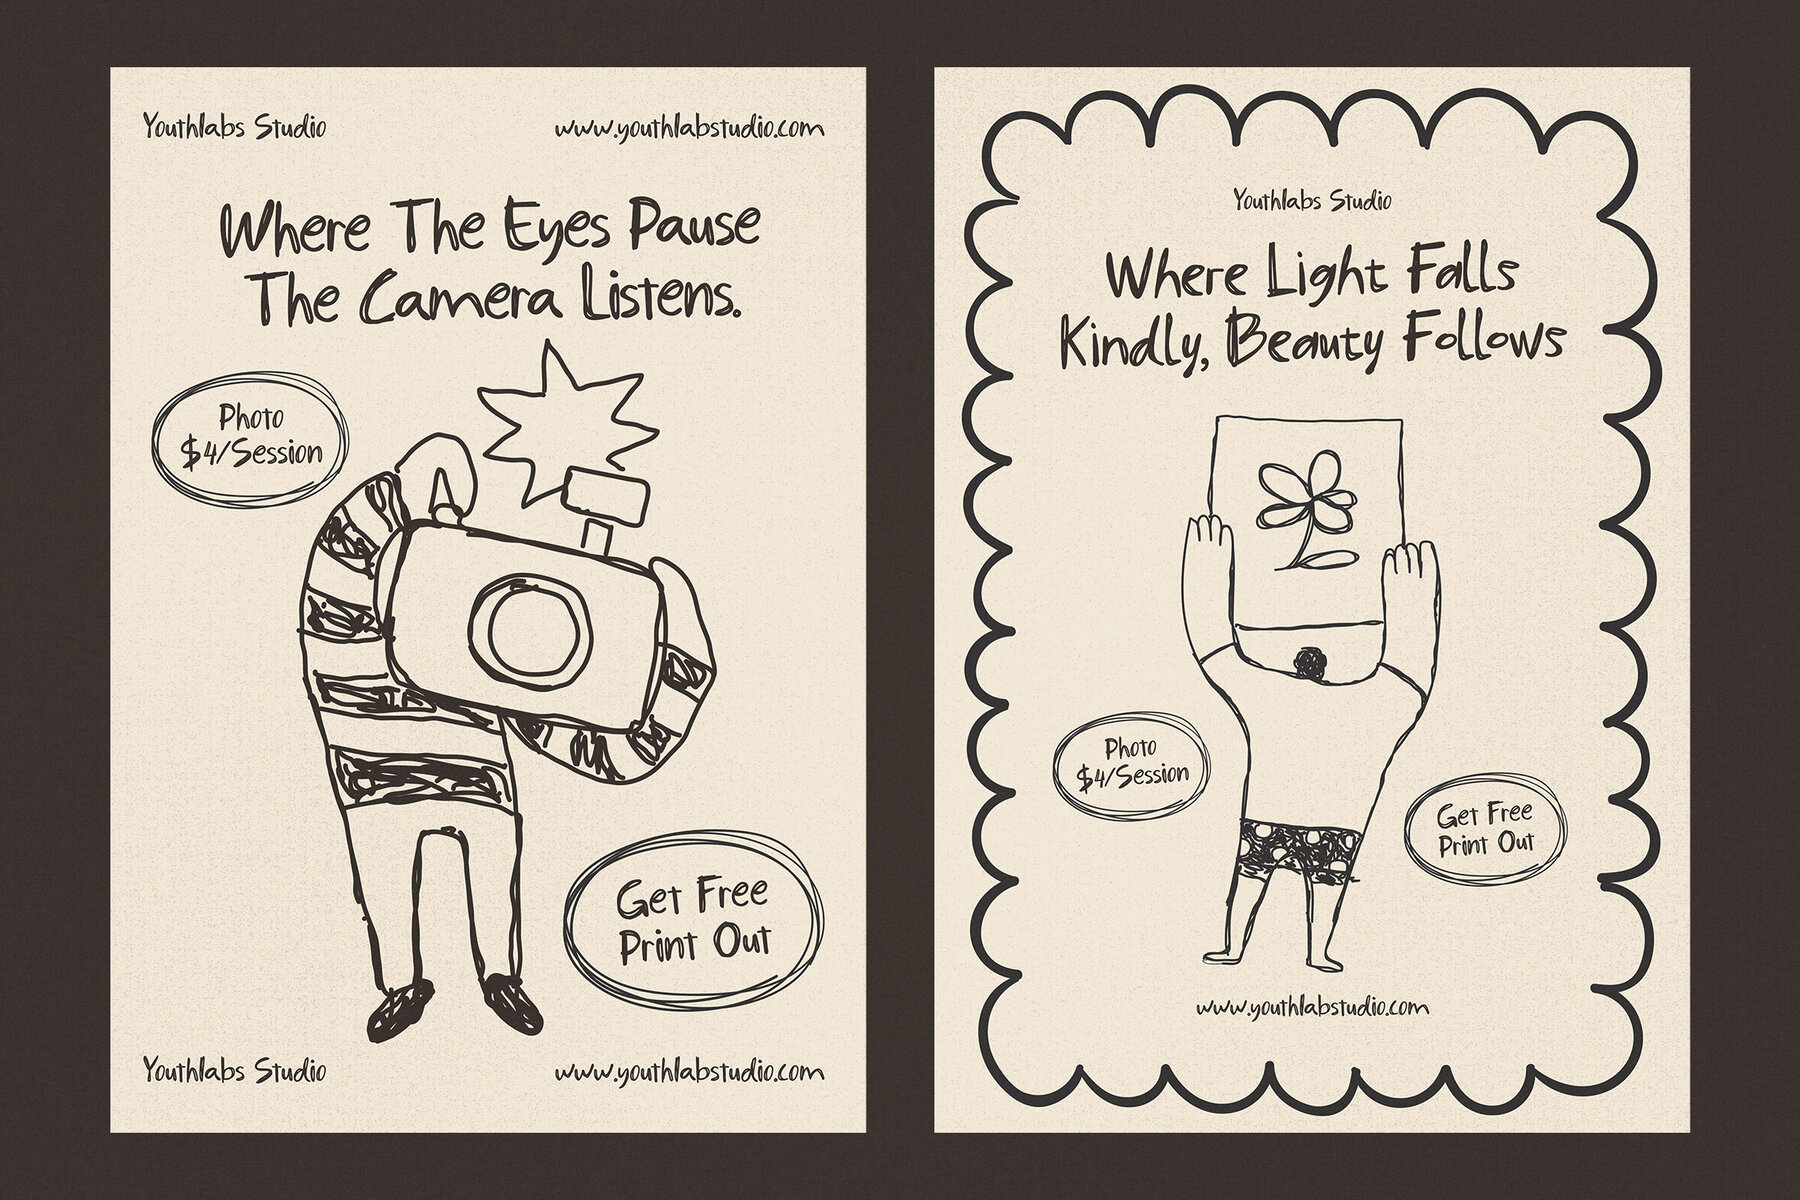 Youthlabs Studio
www.youthlabstudio.com
Where The Eyes Pause
The Camera Listens.
Photo
$4/Session
Get Free
Print Out
Youthlabs Studio
www.youthlabstudio.com
Youthlabs Studio
Where Light Falls
Kindly, Beauty Follows
Photo
$4/Session
Get Free
Print Out
www.youthlabstudio.com